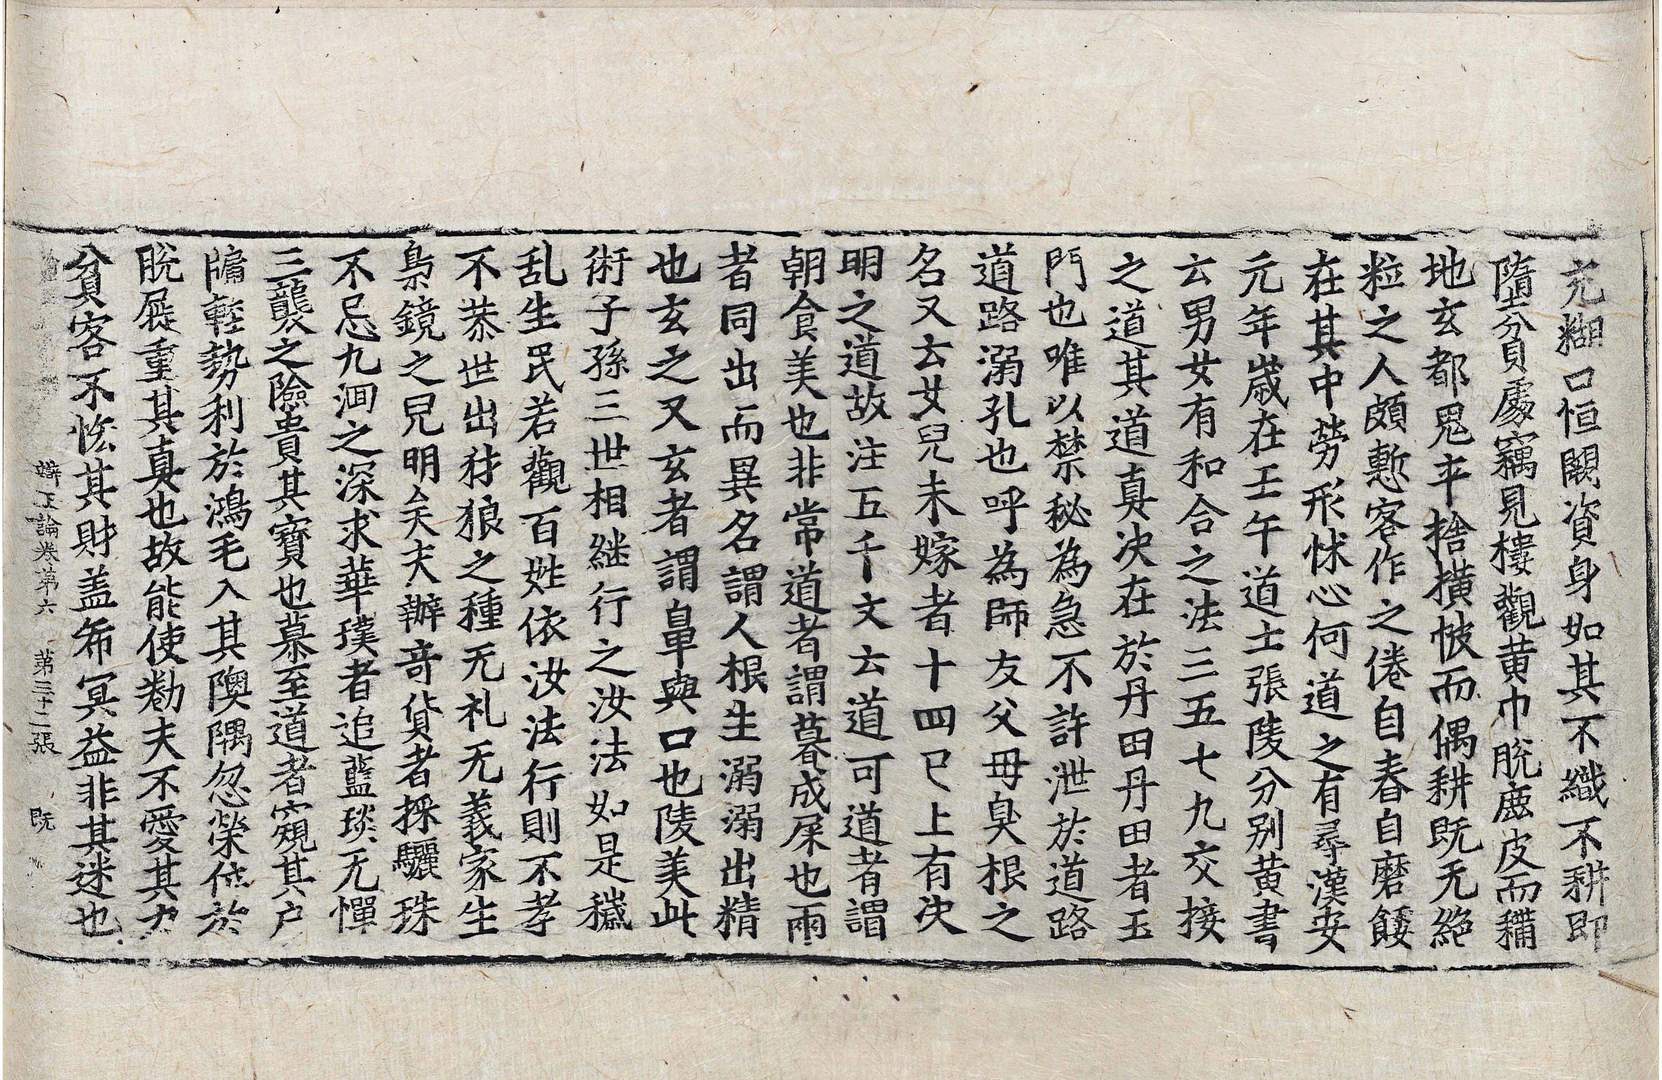 充糊口恒闕資身如其不織不耕即
墮貧處竊見樓觀黃巾脫鹿皮而穪
地玄都鬼卒捨橫帔而偶耕既无絶
粒之人頗慙客作之倦自舂自磨餧
在其中勞形怵心何道之有尋漢安
元年歲在壬午道士張陵分別黃書
云男女有和合之法三五七九交接
之道其道真决在於丹田丹田者玉
門也唯以禁秘為急不許泄於道路
道路溺孔也呼為師友父毋臭根之
名又云女兒未嫁者十四已上有决
明之道故注五千文云道可道者謂
朝食美也非常道者謂暮成屎也兩
者同出而異名謂人根生溺溺出精
也玄之又玄者謂鼻與口也陵美此
術子孫三世相継行之汝法如是穢
乱生民若觀百姓依汝法行則不孝
不恭世出犲狼之種无礼无義家生
梟鏡之兒明矣夫辦竒貨者採驪珠
不忌九洄之深求華璞者追藍琰无憚
三襲之險貴其寶也慕至道者窺其户
牖輊勢利於鴻毛入其隩隅忽榮位於
脫屣重其真也故能使懃夫不愛其力
貧客不恡其財盖希冥益非其迷也
辯正論卷第六 第三十二張 既